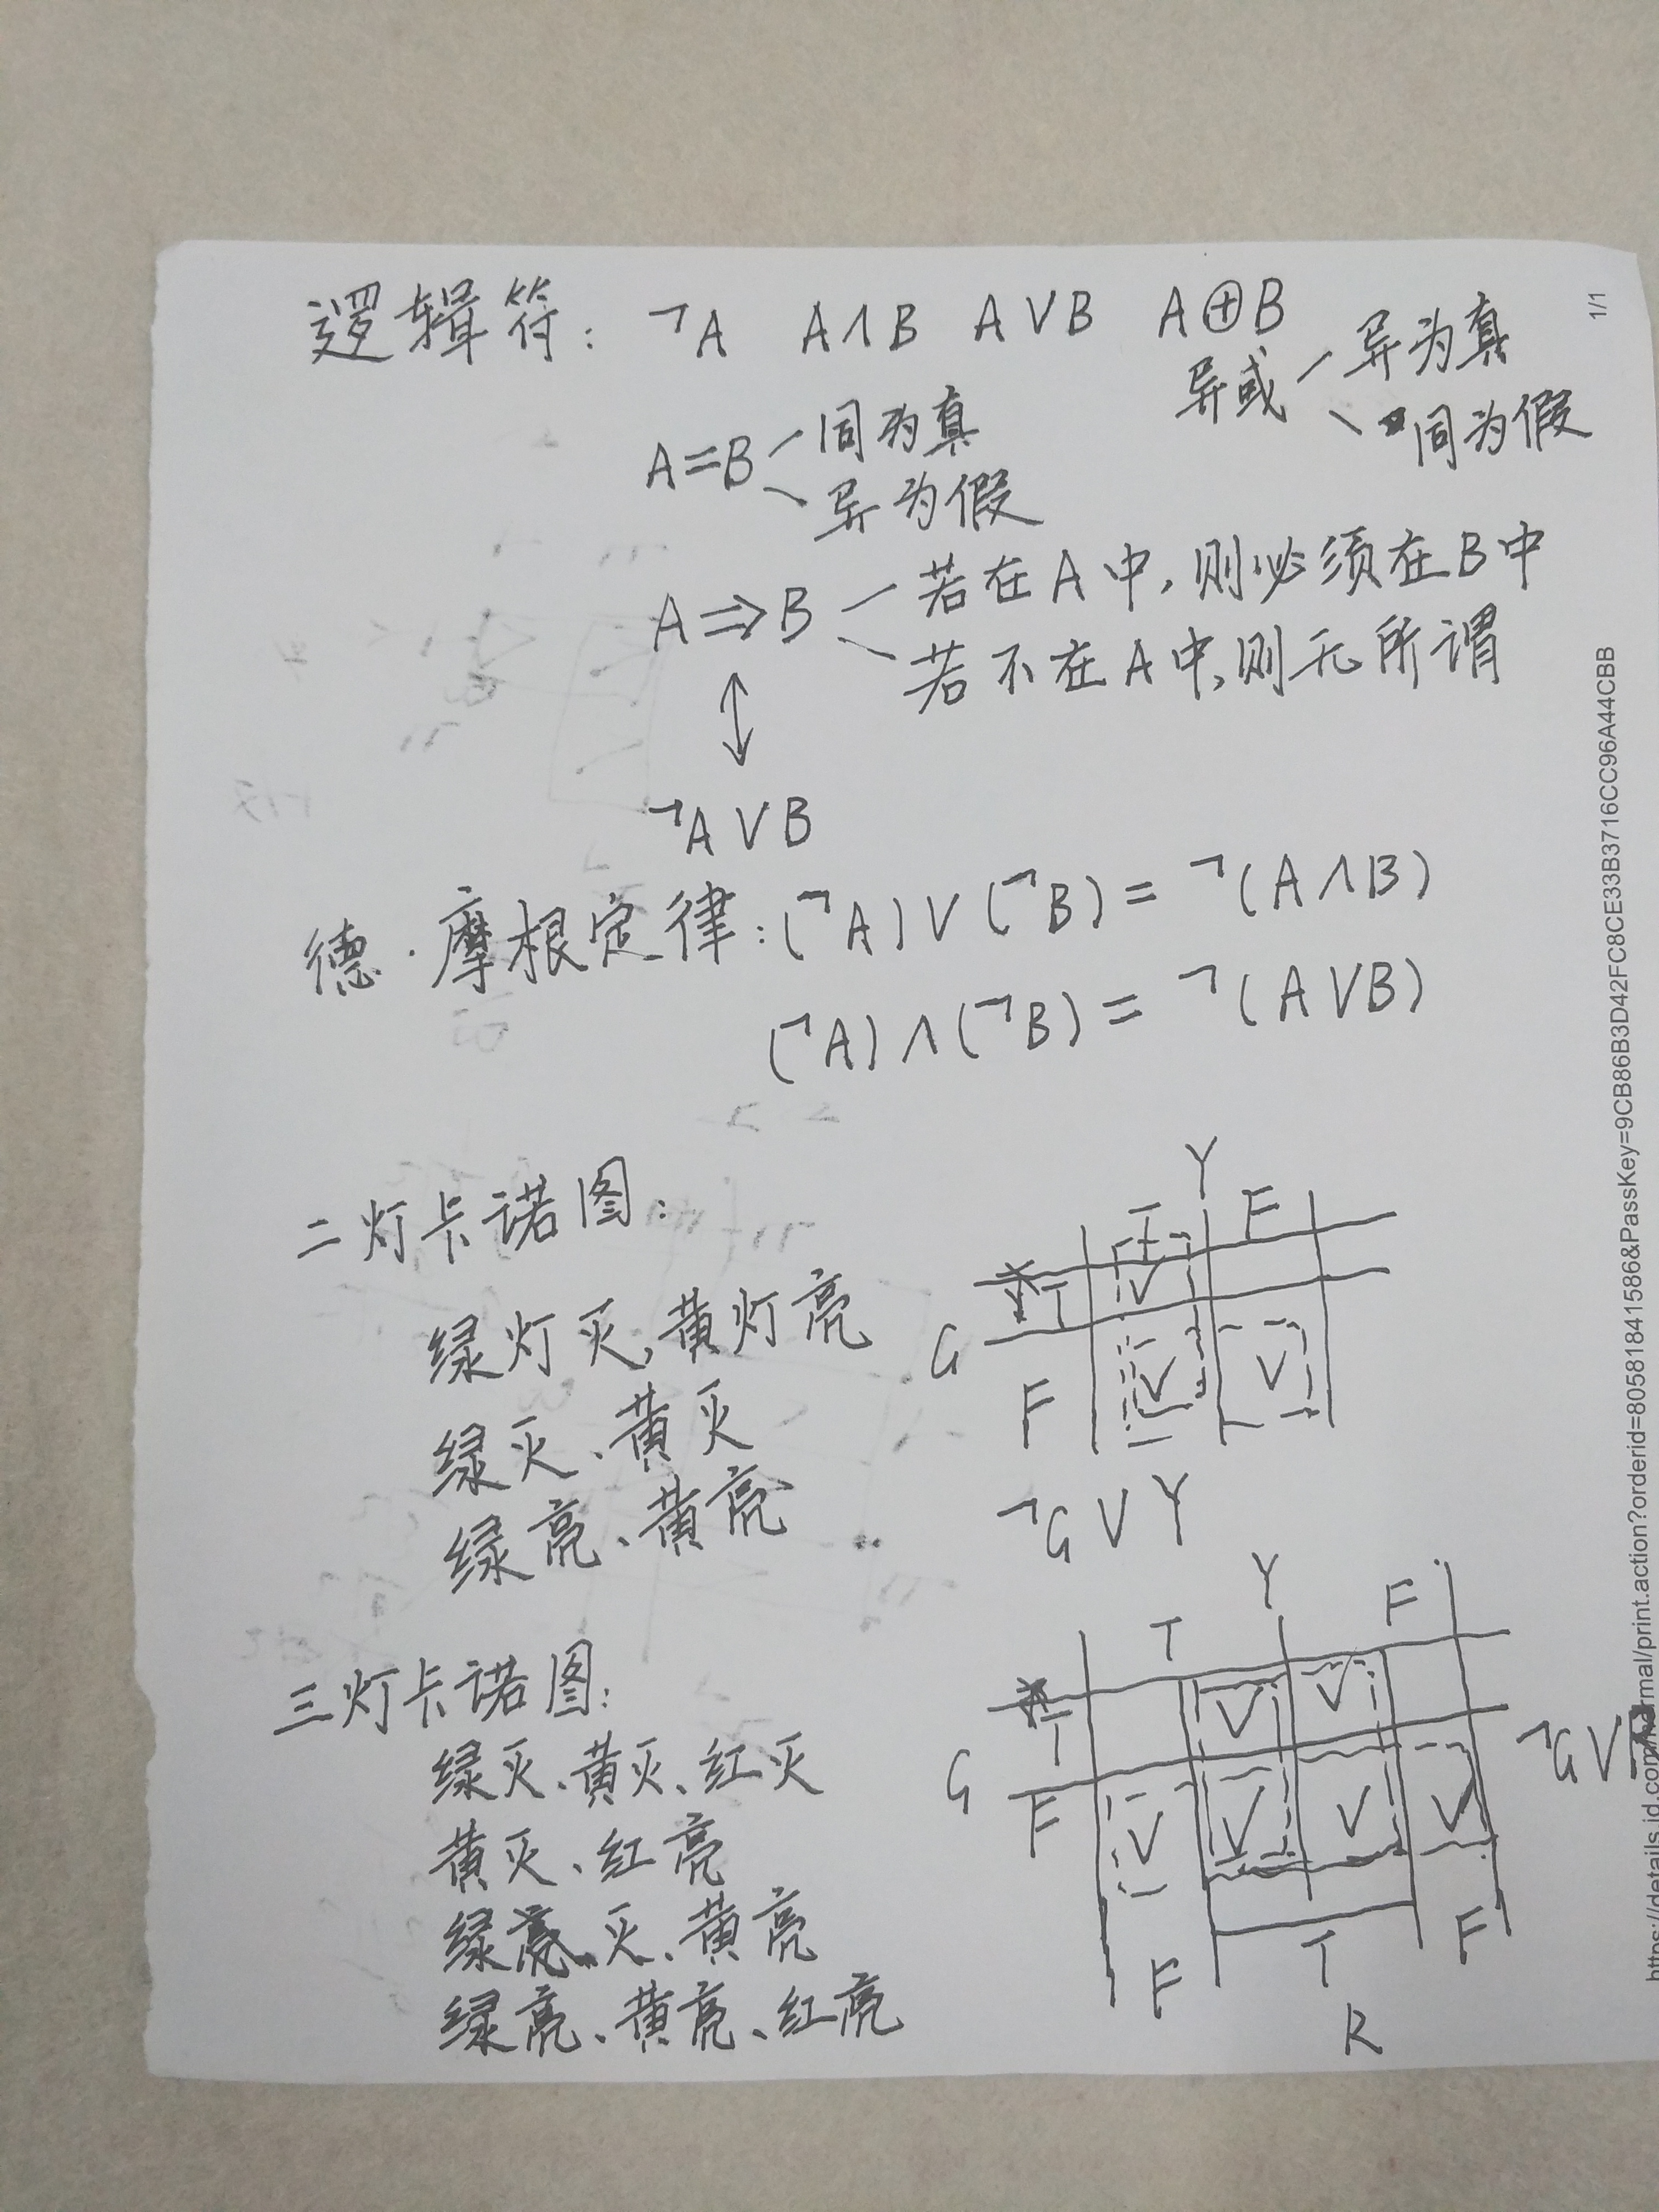 逻辑符: ¬A A∧B A∨B A⊕B
异或 异为真
同为假
A=B 同为真
异为假
A⇒B 若在A中,则必须在B中
若不在A中,则无所谓
↕
¬A∨B
德·摩根定律:(¬A)∨(¬B)=¬(A∧B)
(¬A)∧(¬B)=¬(A∨B)
二灯卡诺图:
绿灯灭,黄灯亮
绿灭、黄灭
绿亮、黄亮
Y
T F
T V
G
F V V
¬G∨Y
三灯卡诺图:
绿灭、黄灭、红灭
黄灭、红亮
绿灭、黄亮
绿亮、黄亮、红亮
Y
T F
T V V
G
F V V V V
¬G∨R
F T F
R
1/1
https://details.jd.com/normal/print.action?orderid=80581841586&PassKey=9CB86B3D42FC8CE33B3716CC96A44CBB